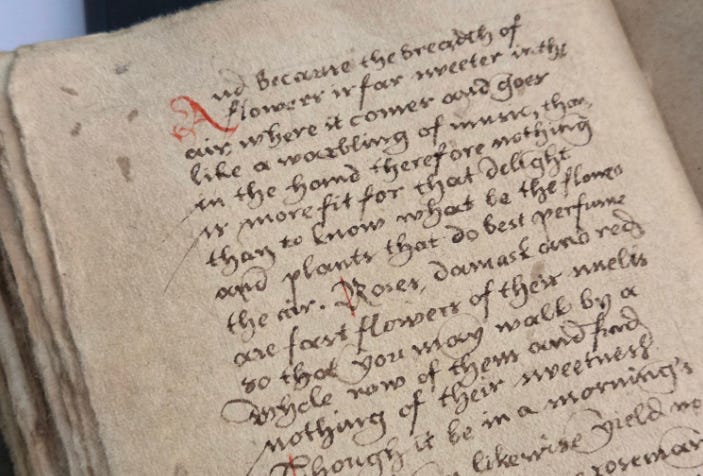 And because the breadth of
flowers is far sweeter in the
air where it comes and goes
like a warbling of music, than
in the hand therefore nothing
is more fit for that delight
than to know what be the flowers
and plants that do best perfume
the air. Roses, damask and red
are fast flowers of their smells
so that you may walk by a
whole row of them and find
nothing of their sweetness
Though it be in a morning's
likewise yield no
rosemar